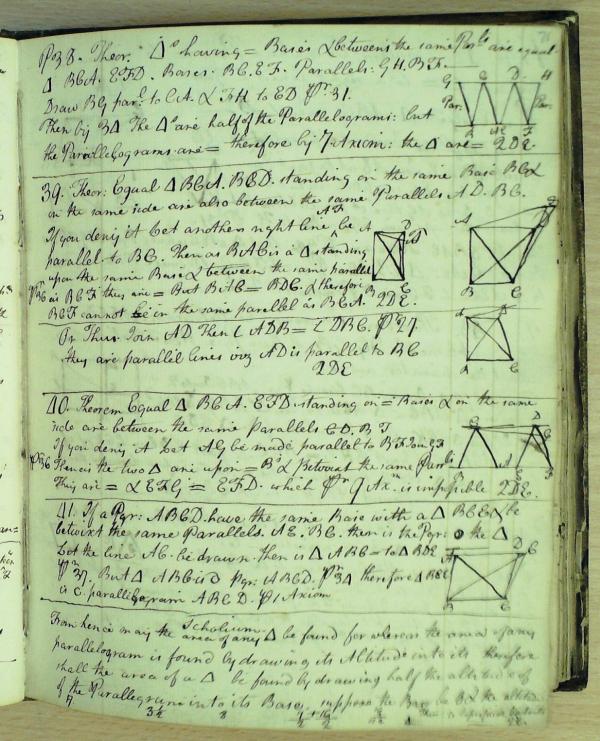 P38. Theor. Δs having = Bases & between the same Parls are equal
Δ BCA. EFD. Bases. BC. EF. Parallels: GH. BF.
Draw BG parl to CA. & FH to ED Pr 31.
Then by 34 The Δs are half of the Parallelograms: but
the Parallelograms are = therefore by 7 Axiom: the Δ are = 2DE.
39. Theor: Equal Δ BCA. BCD. standing on the same Base BC &
on the same side are also between the same Parallels. AD. BC.
If you deny it Let another right line AF be
parallel to BC. Then as BAC is a Δ standing
upon the same Base & between the same parallels
as BCF they are = But BAC = BDC. & therefore
BCF cannot be in the same parallel as BCA. 2DE.
Or Thus. Join AD Then L ADB = L DBC. Pr 27
they are parallel lines AD is parallel to BC
2DE
40. Theorem Equal Δ BCA. EFD. standing on = Bases & on the same
side are between the same Parallels CD. BF
If you deny it Let AG be made parallel to BF Join GF
P36 Then is the two Δ are upon = Bs & Betwixt the same Parrls
They are = & EFG = EFD. which Pr 9 Axm is impossible 2DE.
41. If a Pgr: ABCD. have the same Base with a Δ BCE & be
betwixt the same Parallels. AE. BC. then is the Pgr: the Δ
Let the line AC. be drawn. Then is Δ ABC = to Δ BCE
Pr 37. But Δ ABC is Pgr: ABCD. Pr 34 therefore Δ BCE
is parallelogram ABCD. P 1 Axiom
Scholium
From hence may the area of any Δ be found for whereas the area of any
parallelogram is found by drawing its Altitude into its therefore
shall the area of a Δ be found by drawing half the altitude of
of the Parallelogram into its Base, suppose the Base be 8 & the altitude